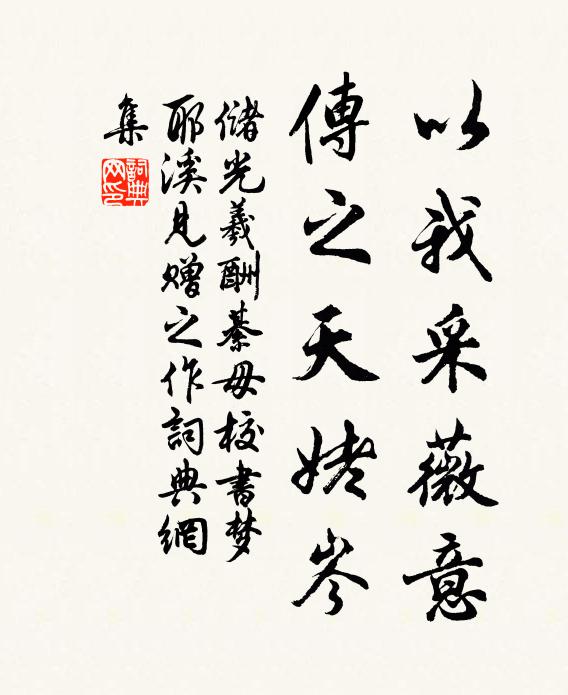 以我采薇意
傳之天姥岑
儲光羲酬綦毋校書梦
耶溪見贈之作詞典網
集
詞典
网印